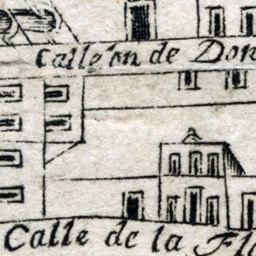 Callejon de Don
Calle de la Fl